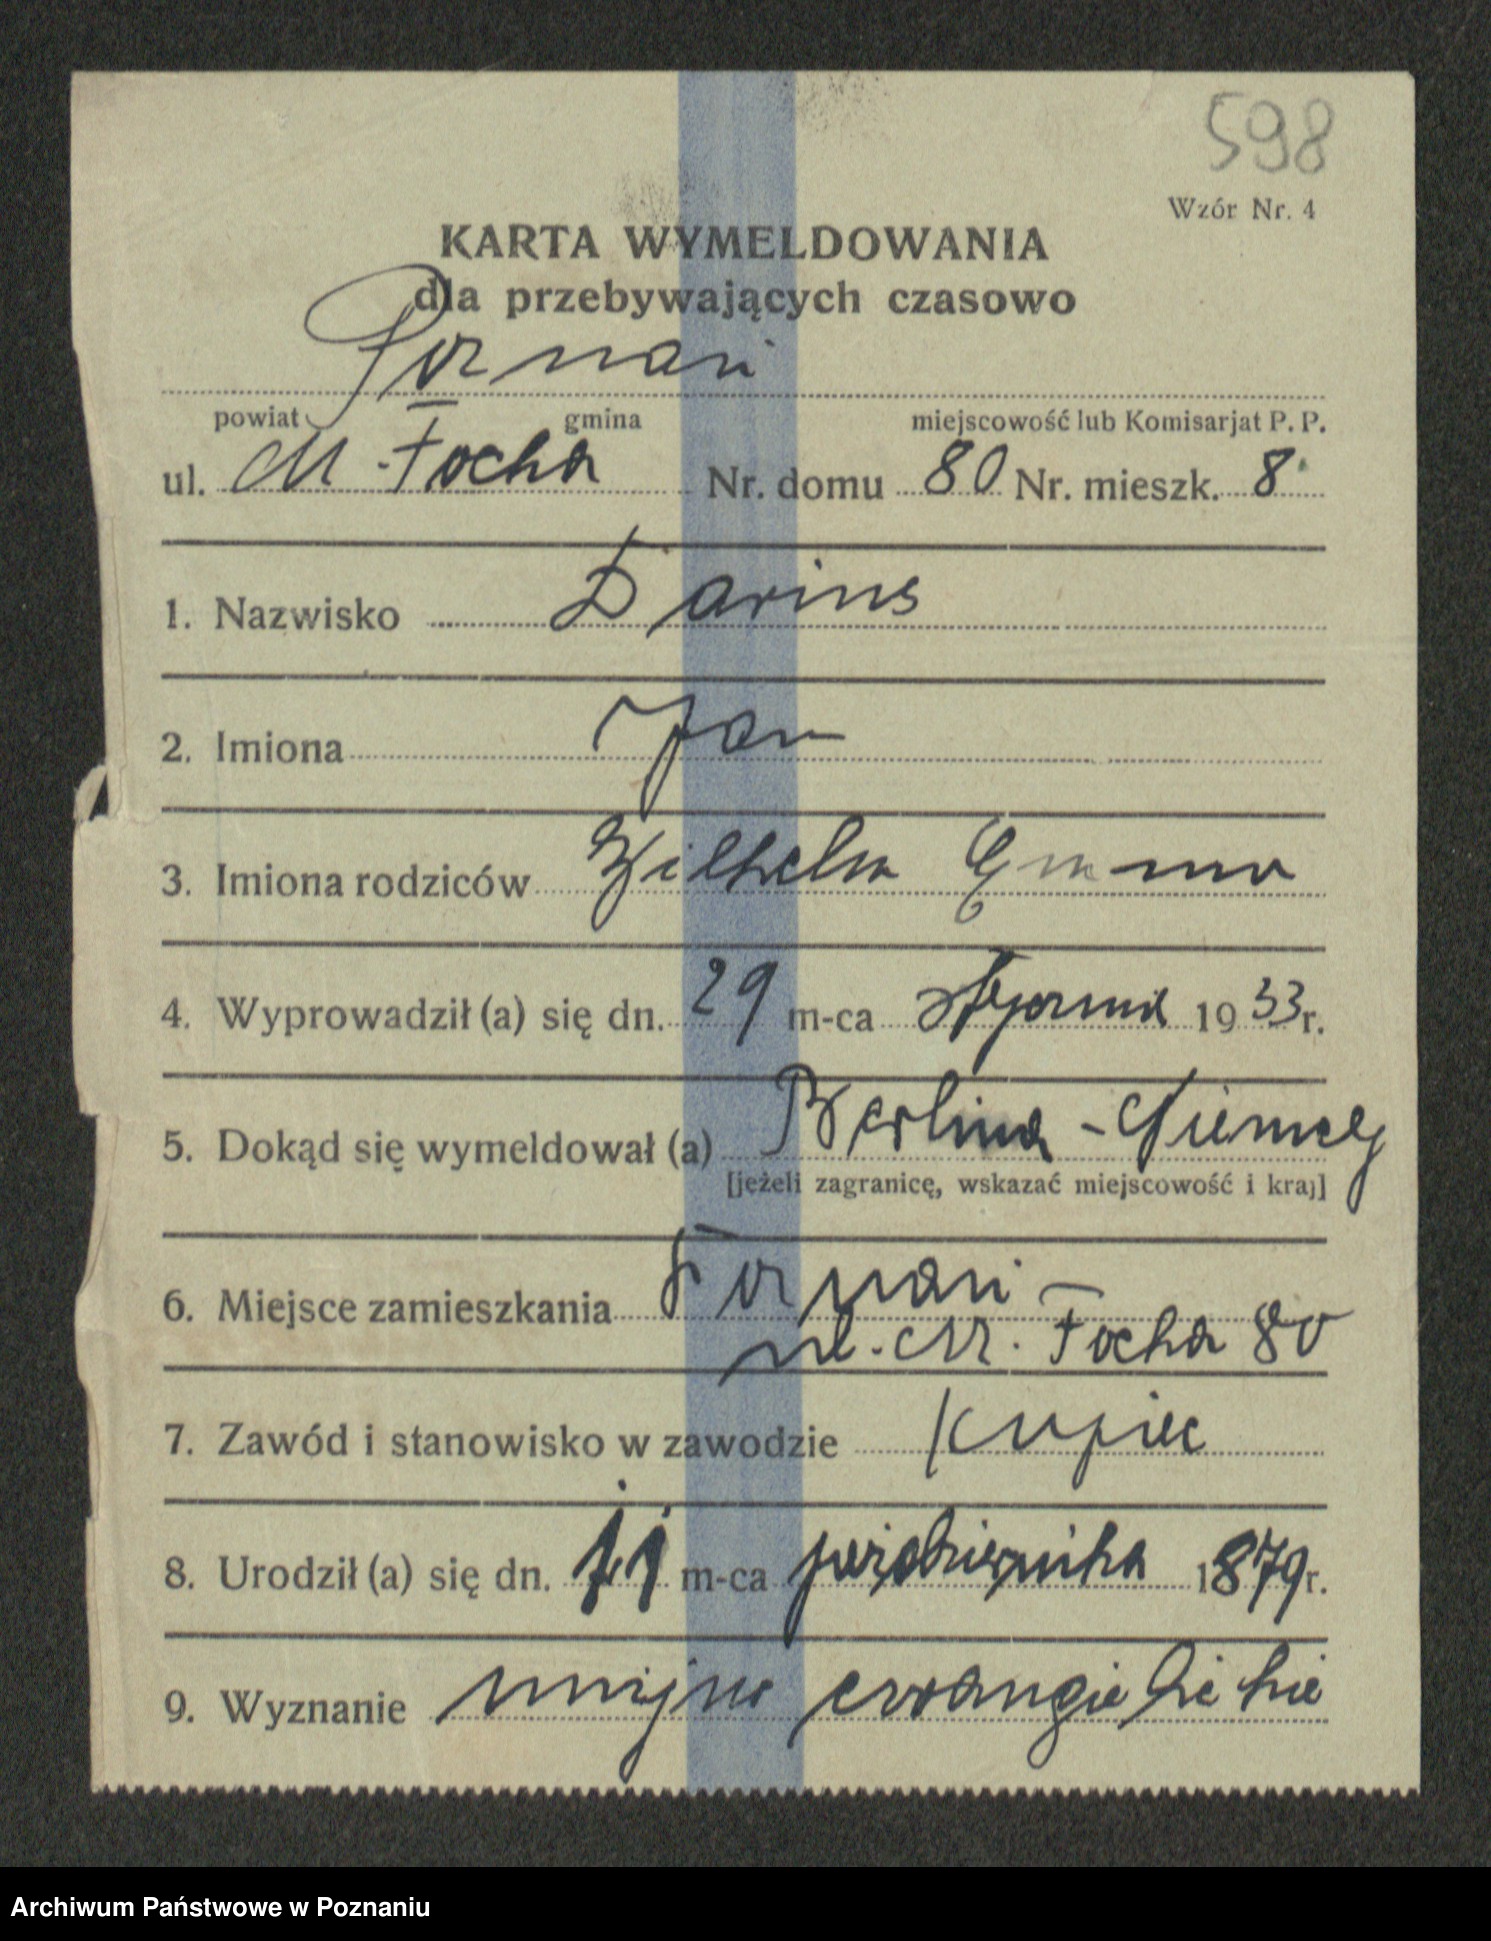 598
Wzór Nr. 4
KARTA WYMELDOWANIA
dla przebywających czasowo
Poznań
powiat gmina miejscowość lub Komisarjat P. P.
ul. M. Focha Nr. domu 80 Nr. mieszk. 8
1. Nazwisko Darius
2. Imiona Jan
3. Imiona rodziców Wilhelm Emma
4. Wyprowadził (a) się dn. 29 m-ca stycznia 1933 r.
5. Dokąd się wymeldował (a) Berlina - Niemcy
[jeżeli zagranicę, wskazać miejscowość i kraj]
6. Miejsce zamieszkania Poznań -
ul. M. Focha 80
7. Zawód i stanowisko w zawodzie Kupiec
8. Urodził (a) się dn. 11 m-ca października 1879 r.
9. Wyznanie unijno ewangielickie
Archiwum Państwowe w Poznaniu